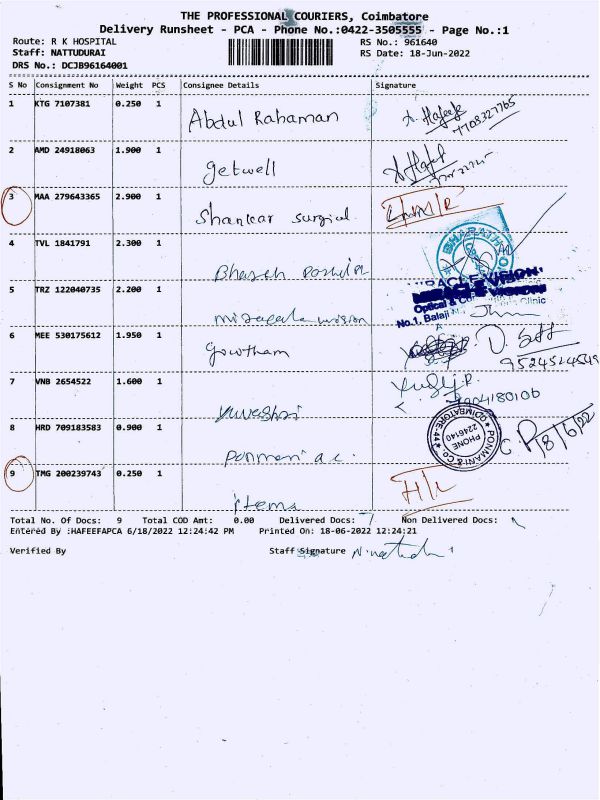 THE PROFESSIONAL COURIERS, Coimbatore
Delivery Runsheet - PCA - Phone No.:0422-3505555 - Page No.:1
Route: R K HOSPITAL RS No.: 961640
Staff: NATTUDURAI RS Date: 18-Jun-2022
DRS No.: DCJB96164001
S No Consignment No Weight PCS Consignee Details Signature
1 KTG 7107381 0.250 1 Abdul Rahaman A. Hafeefa
7708327765
2 AMD 24918063 1.900 1 getwell A. Hafeef
3 MAA 279643365 2.900 1 Shankar surgical
4 TVL 1841791 2.300 1 Bharath
BHARATH HO
5 TRZ 122040735 2.200 1 miracale vision
MIRACLE VISION
Optical & Clinic
No.1, Balaji
6 MEE 530175612 1.950 1 gowtham
9524524549
7 VNB 2654522 1.600 1 yuvashri
8 HRD 709183583 0.900 1 ponmani a.c.
PONMANI & CO
PHONE
2246140
COIMBATORE-44
18/6/22
9 TMG 200239743 0.250 1 items
Total No. Of Docs: 9 Total COD Amt: 0.00 Delivered Docs: 7 Non Delivered Docs:
Entered By :HAFEEFAPCA 6/18/2022 12:24:42 PM Printed On: 18-06-2022 12:24:21
Verified By Staff Signature